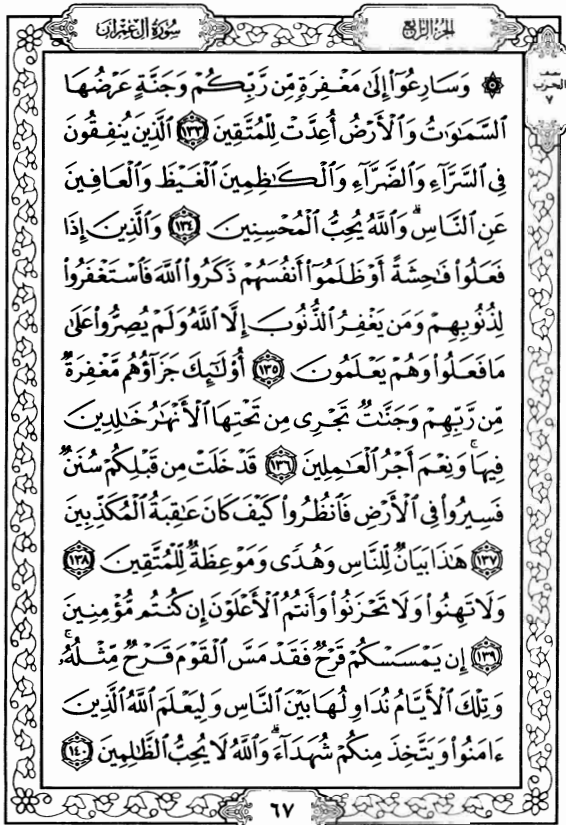 الجزء الرابع
سورة آل عمران
نصف
الحزب
٧
۞ وَسَارِعُوٓا۟ إِلَىٰ مَغْفِرَةٍ مِّن رَّبِّكُمْ وَجَنَّةٍ عَرْضُهَا
ٱلسَّمَـٰوَٰتُ وَٱلْأَرْضُ أُعِدَّتْ لِلْمُتَّقِينَ ١٣٣ ٱلَّذِينَ يُنفِقُونَ
فِى ٱلسَّرَّآءِ وَٱلضَّرَّآءِ وَٱلْكَـٰظِمِينَ ٱلْغَيْظَ وَٱلْعَافِينَ
عَنِ ٱلنَّاسِ ۗ وَٱللَّهُ يُحِبُّ ٱلْمُحْسِنِينَ ١٣٤ وَٱلَّذِينَ إِذَا
فَعَلُوا۟ فَـٰحِشَةً أَوْ ظَلَمُوٓا۟ أَنفُسَهُمْ ذَكَرُوا۟ ٱللَّهَ فَٱسْتَغْفَرُوا۟
لِذُنُوبِهِمْ وَمَن يَغْفِرُ ٱلذُّنُوبَ إِلَّا ٱللَّهُ وَلَمْ يُصِرُّوا۟ عَلَىٰ
مَا فَعَلُوا۟ وَهُمْ يَعْلَمُونَ ١٣٥ أُو۟لَـٰٓئِكَ جَزَآؤُهُم مَّغْفِرَةٌ
مِّن رَّبِّهِمْ وَجَنَّـٰتٌ تَجْرِى مِن تَحْتِهَا ٱلْأَنْهَـٰرُ خَـٰلِدِينَ
فِيهَا ۚ وَنِعْمَ أَجْرُ ٱلْعَـٰمِلِينَ ١٣٦ قَدْ خَلَتْ مِن قَبْلِكُمْ سُنَنٌ
فَسِيرُوا۟ فِى ٱلْأَرْضِ فَٱنظُرُوا۟ كَيْفَ كَانَ عَـٰقِبَةُ ٱلْمُكَذِّبِينَ
١٣٧ هَـٰذَا بَيَانٌ لِّلنَّاسِ وَهُدًى وَمَوْعِظَةٌ لِّلْمُتَّقِينَ ١٣٨
وَلَا تَهِنُوا۟ وَلَا تَحْزَنُوا۟ وَأَنتُمُ ٱلْأَعْلَوْنَ إِن كُنتُم مُّؤْمِنِينَ
١٣٩ إِن يَمْسَسْكُمْ قَرْحٌ فَقَدْ مَسَّ ٱلْقَوْمَ قَرْحٌ مِّثْلُهُۥ ۚ
وَتِلْكَ ٱلْأَيَّامُ نُدَاوِلُهَا بَيْنَ ٱلنَّاسِ وَلِيَعْلَمَ ٱللَّهُ ٱلَّذِينَ
ءَامَنُوا۟ وَيَتَّخِذَ مِنكُمْ شُهَدَآءَ ۗ وَٱللَّهُ لَا يُحِبُّ ٱلظَّـٰلِمِينَ ١٤٠
٦٧